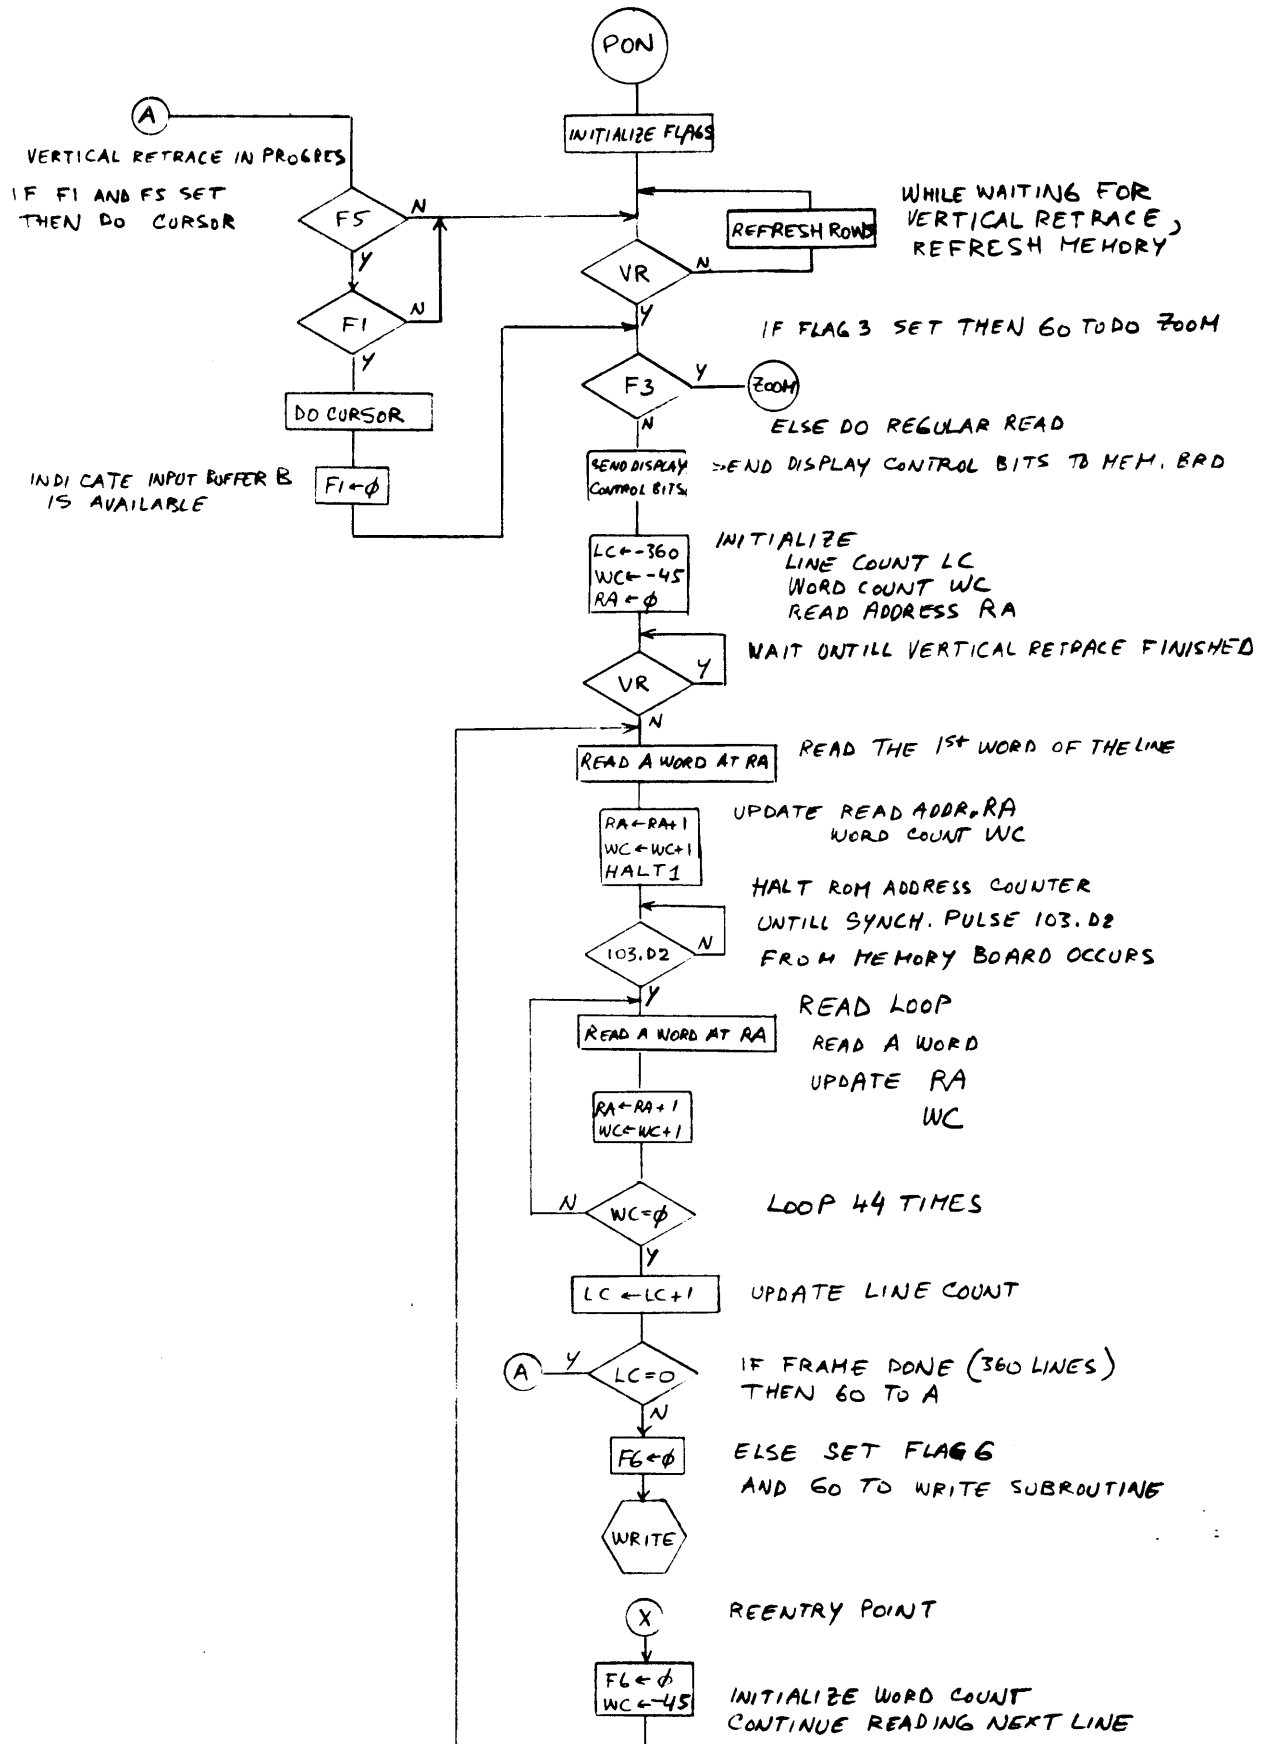 PON
INITIALIZE FLAGS
A
VERTICAL RETRACE IN PROGRES
IF F1 AND F5 SET
THEN DO CURSOR
F5
N
Y
F1
N
Y
DO CURSOR
INDICATE INPUT BUFFER B
IS AVAILABLE
F1←ϕ
REFRESH ROWS
WHILE WAITING FOR
VERTICAL RETRACE,
REFRESH MEMORY
VR
N
Y
IF FLAG 3 SET THEN GO TO DO ZOOM
F3
Y
ZOOM
N
ELSE DO REGULAR READ
SEND DISPLAY
CONTROL BITS
SEND DISPLAY CONTROL BITS TO MEM. BRD
LC←-360
WC←-45
RA←ϕ
INITIALIZE
LINE COUNT LC
WORD COUNT WC
READ ADDRESS RA
WAIT UNTILL VERTICAL RETRACE FINISHED
VR
Y
N
READ A WORD AT RA
READ THE 1st WORD OF THE LINE
RA←RA+1
WC←WC+1
HALT1
UPDATE READ ADDR. RA
WORD COUNT WC
HALT ROM ADDRESS COUNTER
UNTILL SYNCH. PULSE 103.D2
FROM MEMORY BOARD OCCURS
103.D2
N
Y
READ A WORD AT RA
READ LOOP
READ A WORD
UPDATE RA
WC
RA←RA+1
WC←WC+1
WC=ϕ
N
Y
LOOP 44 TIMES
LC←LC+1
UPDATE LINE COUNT
A
Y
LC=0
N
IF FRAME DONE (360 LINES)
THEN GO TO A
F6←ϕ
ELSE SET FLAG 6
AND GO TO WRITE SUBROUTINE
WRITE
X
REENTRY POINT
F6←ϕ
WC←-45
INITIALIZE WORD COUNT
CONTINUE READING NEXT LINE